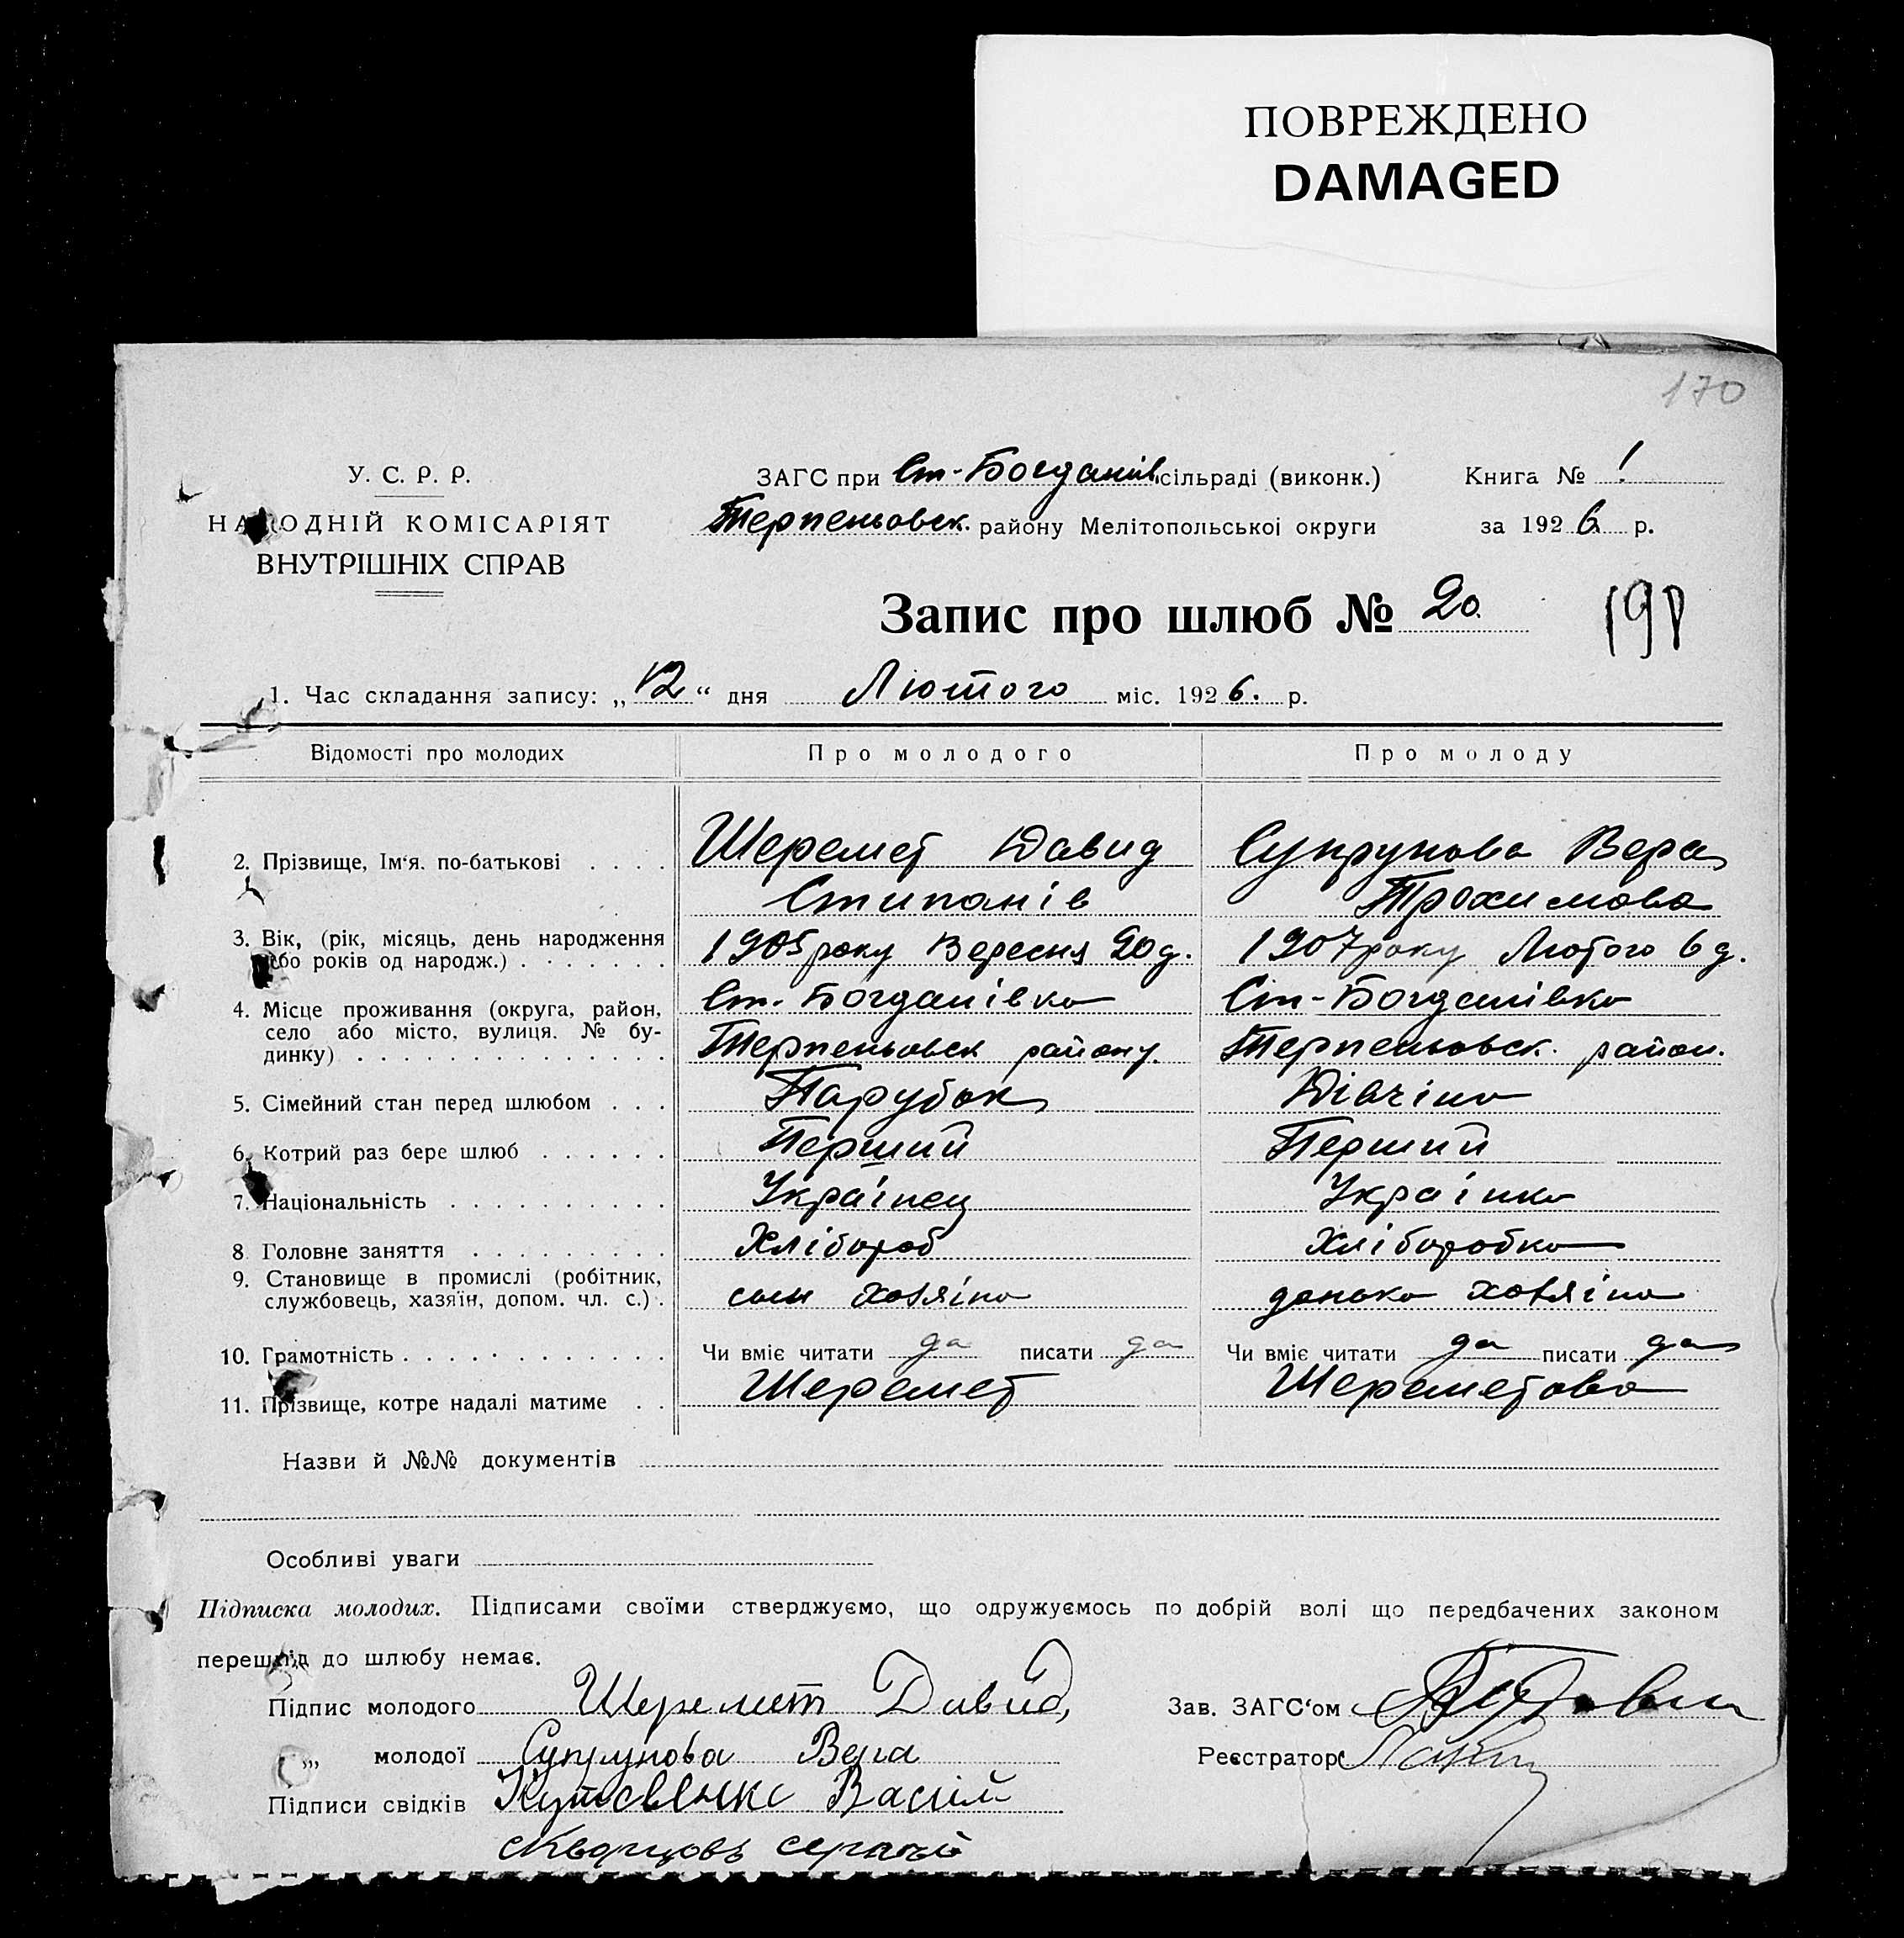 ПОВРЕЖДЕНО
DAMAGED
170
У. С. Р. Р.
НАРОДНІЙ КОМІСАРІЯТ
ВНУТРІШНІХ СПРАВ
ЗАГС при Ст-Богданів. сільраді (виконк.)
Терпеньовск. району Мелітопольської округи
Книга № 1
за 1926 р.
Запис про шлюб № 20.
198
1. Час складання запису: „12“ дня Лютого міс. 1926. р.
Відомості про молодих Про молодого Про молоду
2. Прізвище, Ім‘я. по-батькові . . . . Шеремет Давид Супрунова Вера
Стипанів Трохимова
3. Вік, (рік, місяць, день народження 1905 року Вересня 20 д. 1907 року Лютого 6 д.
або років од народж.) . . . . . . .
4. Місце проживання (округа, район, Ст. Богданівка Ст-Богданівка
село або місто, вулиця. № бу-
динку) . . . . . . . . . . . . . . Терпеньовск району. Терпеньовск. район.
5. Сімейний стан перед шлюбом . . . Парубок Дівчіна
6. Котрий раз бере шлюб . . . . . . Перший Перший
7. Національність . . . . . . . . . . Українец Українка
8 Головне заняття . . . . . . . . . Хлібороб Хліборобка
9. Становище в промислі (робітник,
службовець, хазяїн, допом. чл. с.) . сын хозяіна донька хозяіна
10. Грамотність . . . . . . . . . . . . Чи вміє читати да писати да Чи вміє читати да писати да
11. Прізвище, котре надалі матиме . . Шеремет Шереметова
Назви й №№ документів
Особливі уваги
Підписка молодих. Підписами своїми стверджуємо, що одружуємось по добрій волі що передбачених законом
перешкід до шлюбу немає.
Підпис молодого Шеремет Давид
Зав. ЗАГС‘ом
„ молодої Супрунова Вера
Реєстратор
Підписи свідків Василій
Скворцовъ Сергей